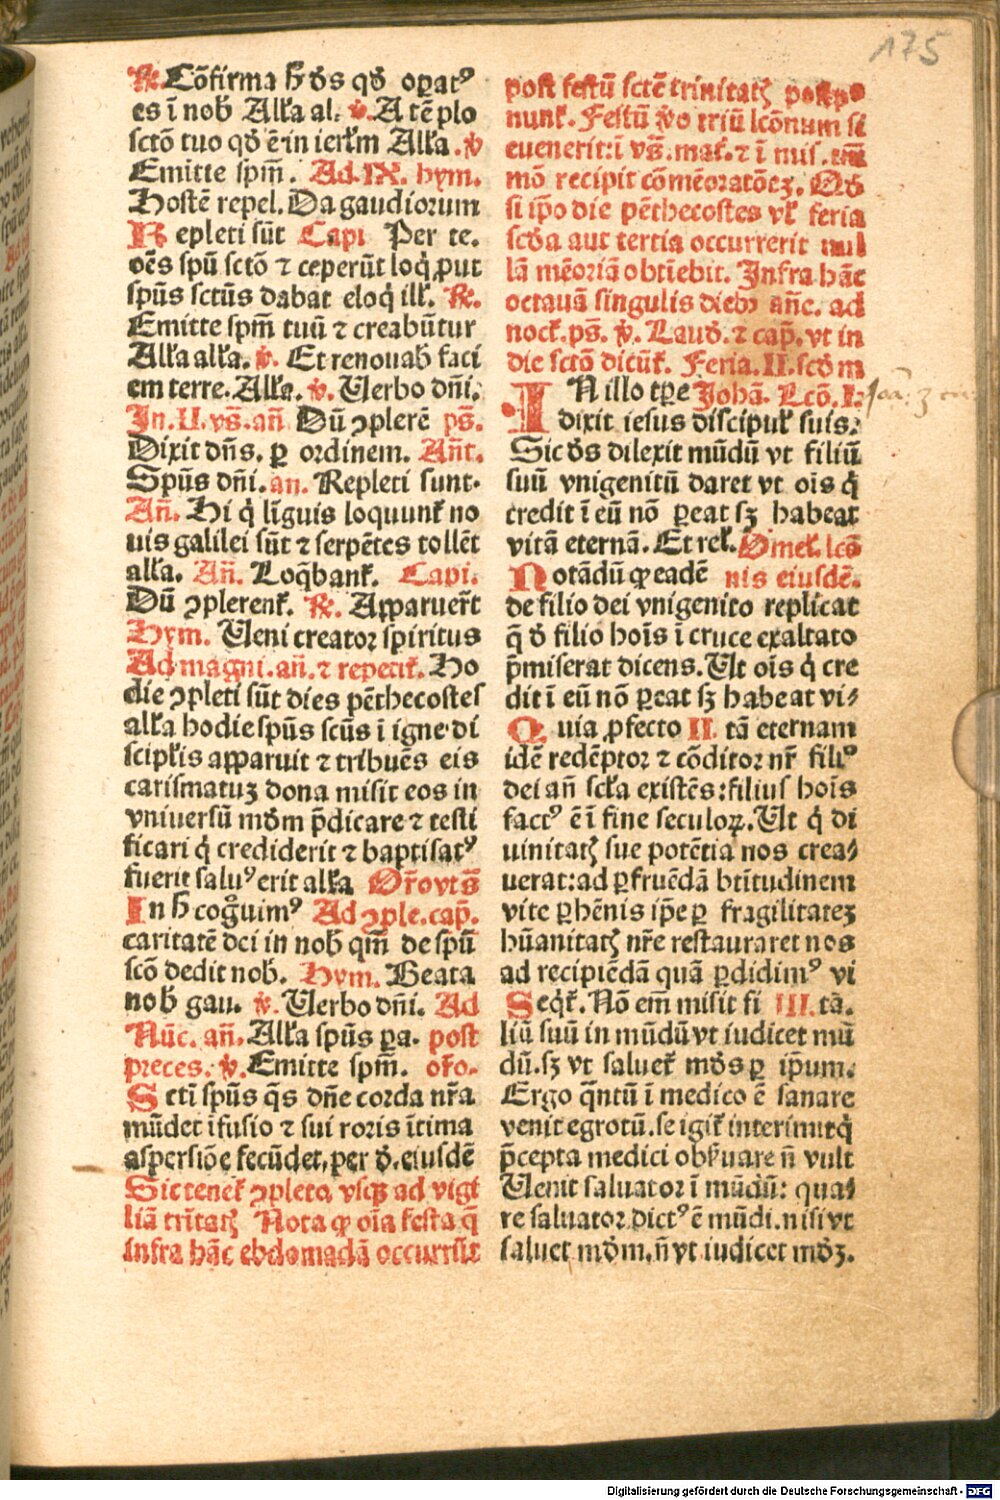 175
℟. Cōfirma h̄ ds̄ qd̄ opat⁹
es ī nob̄ Alľa al. ℣. A tēplo
sctō tuo qd̄ ē in ierľm Alľa. ℣
Emitte spm̄. Ad. IX. hym.
Hostē repel. Da gaudiorum
Repleti sūt Capi Per te.
oēs spū sctō ⁊ ceperūt loq̄ ꝓut
spūs sctūs dabat eloq̄ ilľ. ℟.
Emitte spm̄ tuū ⁊ creabūtur
Alľa alľa. ℣. Et renouab̄ faci
em terre. Alľa. ℣. Verbo dn̄i.
In. II. vs̄. an̄ Dū ꝯplerē ps̄.
Dixit dn̄s. ꝑ ordinem. An̄t.
Spūs dn̄i. an. Repleti sunt.
An̄. Hi q̄ līguis loquunť no
uis galilei sūt ⁊ serpētes tollēt
alľa. An̄. Loq̄banť. Capi.
Dū ꝯplerenť. ℟. Apparuer̄t
Hym. Veni creator spiritus
Ad magni. an̄. ⁊ repetiť. Ho
die ꝯpleti sūt dies pēthecostes
alľa hodie spūs scūs ī igne di
scipľis apparuit ⁊ tribuēs eis
carismatuꝫ dona misit eos in
vniuersū mōm p̄dicare ⁊ testi
ficari q̄ crediderit ⁊ baptisat⁹
fuerit salu⁹ erit alľa Or̄o vt s̄
In h̄ coḡuim⁹ Ad ꝯple. cap̄.
caritatē dei in nob̄ qm̄ de spū
scō dedit nob̄. Hym. Beata
nob̄ gau. ℣. Verbo dn̄i. Ad
Nūc. an̄. Alľa spūs pa. post
preces. ℣. Emitte spm̄. or̄o.
Sctī spūs qs̄ dn̄e corda nr̄a
mūdet īfusio ⁊ sui roris ītima
aspersiōe fecūdet, per d̄. eiusdē
Sic teneť ꝯpleta vsqꝫ ad vigi
liā trītatꝭ Nota ꝙ oīa festa q̄
infra hāc ebdomadā occurrūt
post festū sctē trinitatꝭ postpo
nunť. Festū ꝟo triū lcōnum si
euenerit: ī vs̄. mať. ⁊ ī mis. tm̄
mō recipit cōmēoratōeꝫ. Qd̄
si ip̄o die pēthecostes vľ feria
scd̄a aut tertia occurrerit nul
lā mēoriā obtīebit. Infra hāc
octauā singulis diebꝫ anc̄. ad
nocť. ps̄. ℣. Laud̄. ⁊ cap̄. vt in
die sctō dicūť. Feria. II. scd̄m
IN illo tꝑe Johā. Lcō. I.
dixit iesus discipuľ suis:
Sic ds̄ dilexit mūdū vt filiū
suū vnigenitū daret vt oīs q̄
credit ī eū nō ꝑeat sꝫ habeat
vitā eternā. Et reľ. Omeľ. lcō
Notādū ꝙ eadē nis eiusdē.
de filio dei vnigenito replicat
q̄ d̄ filio hoīs ī cruce exaltato
p̄miserat dicens. Vt oīs q̄ cre
dit ī eū nō ꝑeat sꝫ habeat vi⸗
Quia ꝓfecto II tā eternam
idē redēptor ⁊ cōditor nr̄ fili⁹
dei an̄ scľa existēs: filius hoīs
fact⁹ ē ī fine seculoꝝ. Vt q̄ di
uinitatꝭ sue potētia nos crea⸗
uerat: ad ꝑfruēdā btītudinem
vite ꝑhēnis ip̄e ꝑ fragilitateꝫ
hūanitatꝭ nr̄e restauraret nos
ad recipiēdā quā ꝑdidim⁹ vi
Seq̄ť. Nō em̄ misit fi III. tā.
liū suū in mūdū vt iudicet mū
dū. sꝫ vt salueť mōs ꝑ ip̄um.
Ergo q̄ntū ī medico ē sanare
venit egrotū. se igiť interimit q̄
p̄cepta medici obľuare n̄ vult
Venit saluator ī mūdū: qua⸗
re saluator dict⁹ ē mūdi. nisi vt
saluet mōm. n̄ vt iudicet mōꝫ.
Digitalisierung gefördert durch die Deutsche Forschungsgemeinschaft - DFG